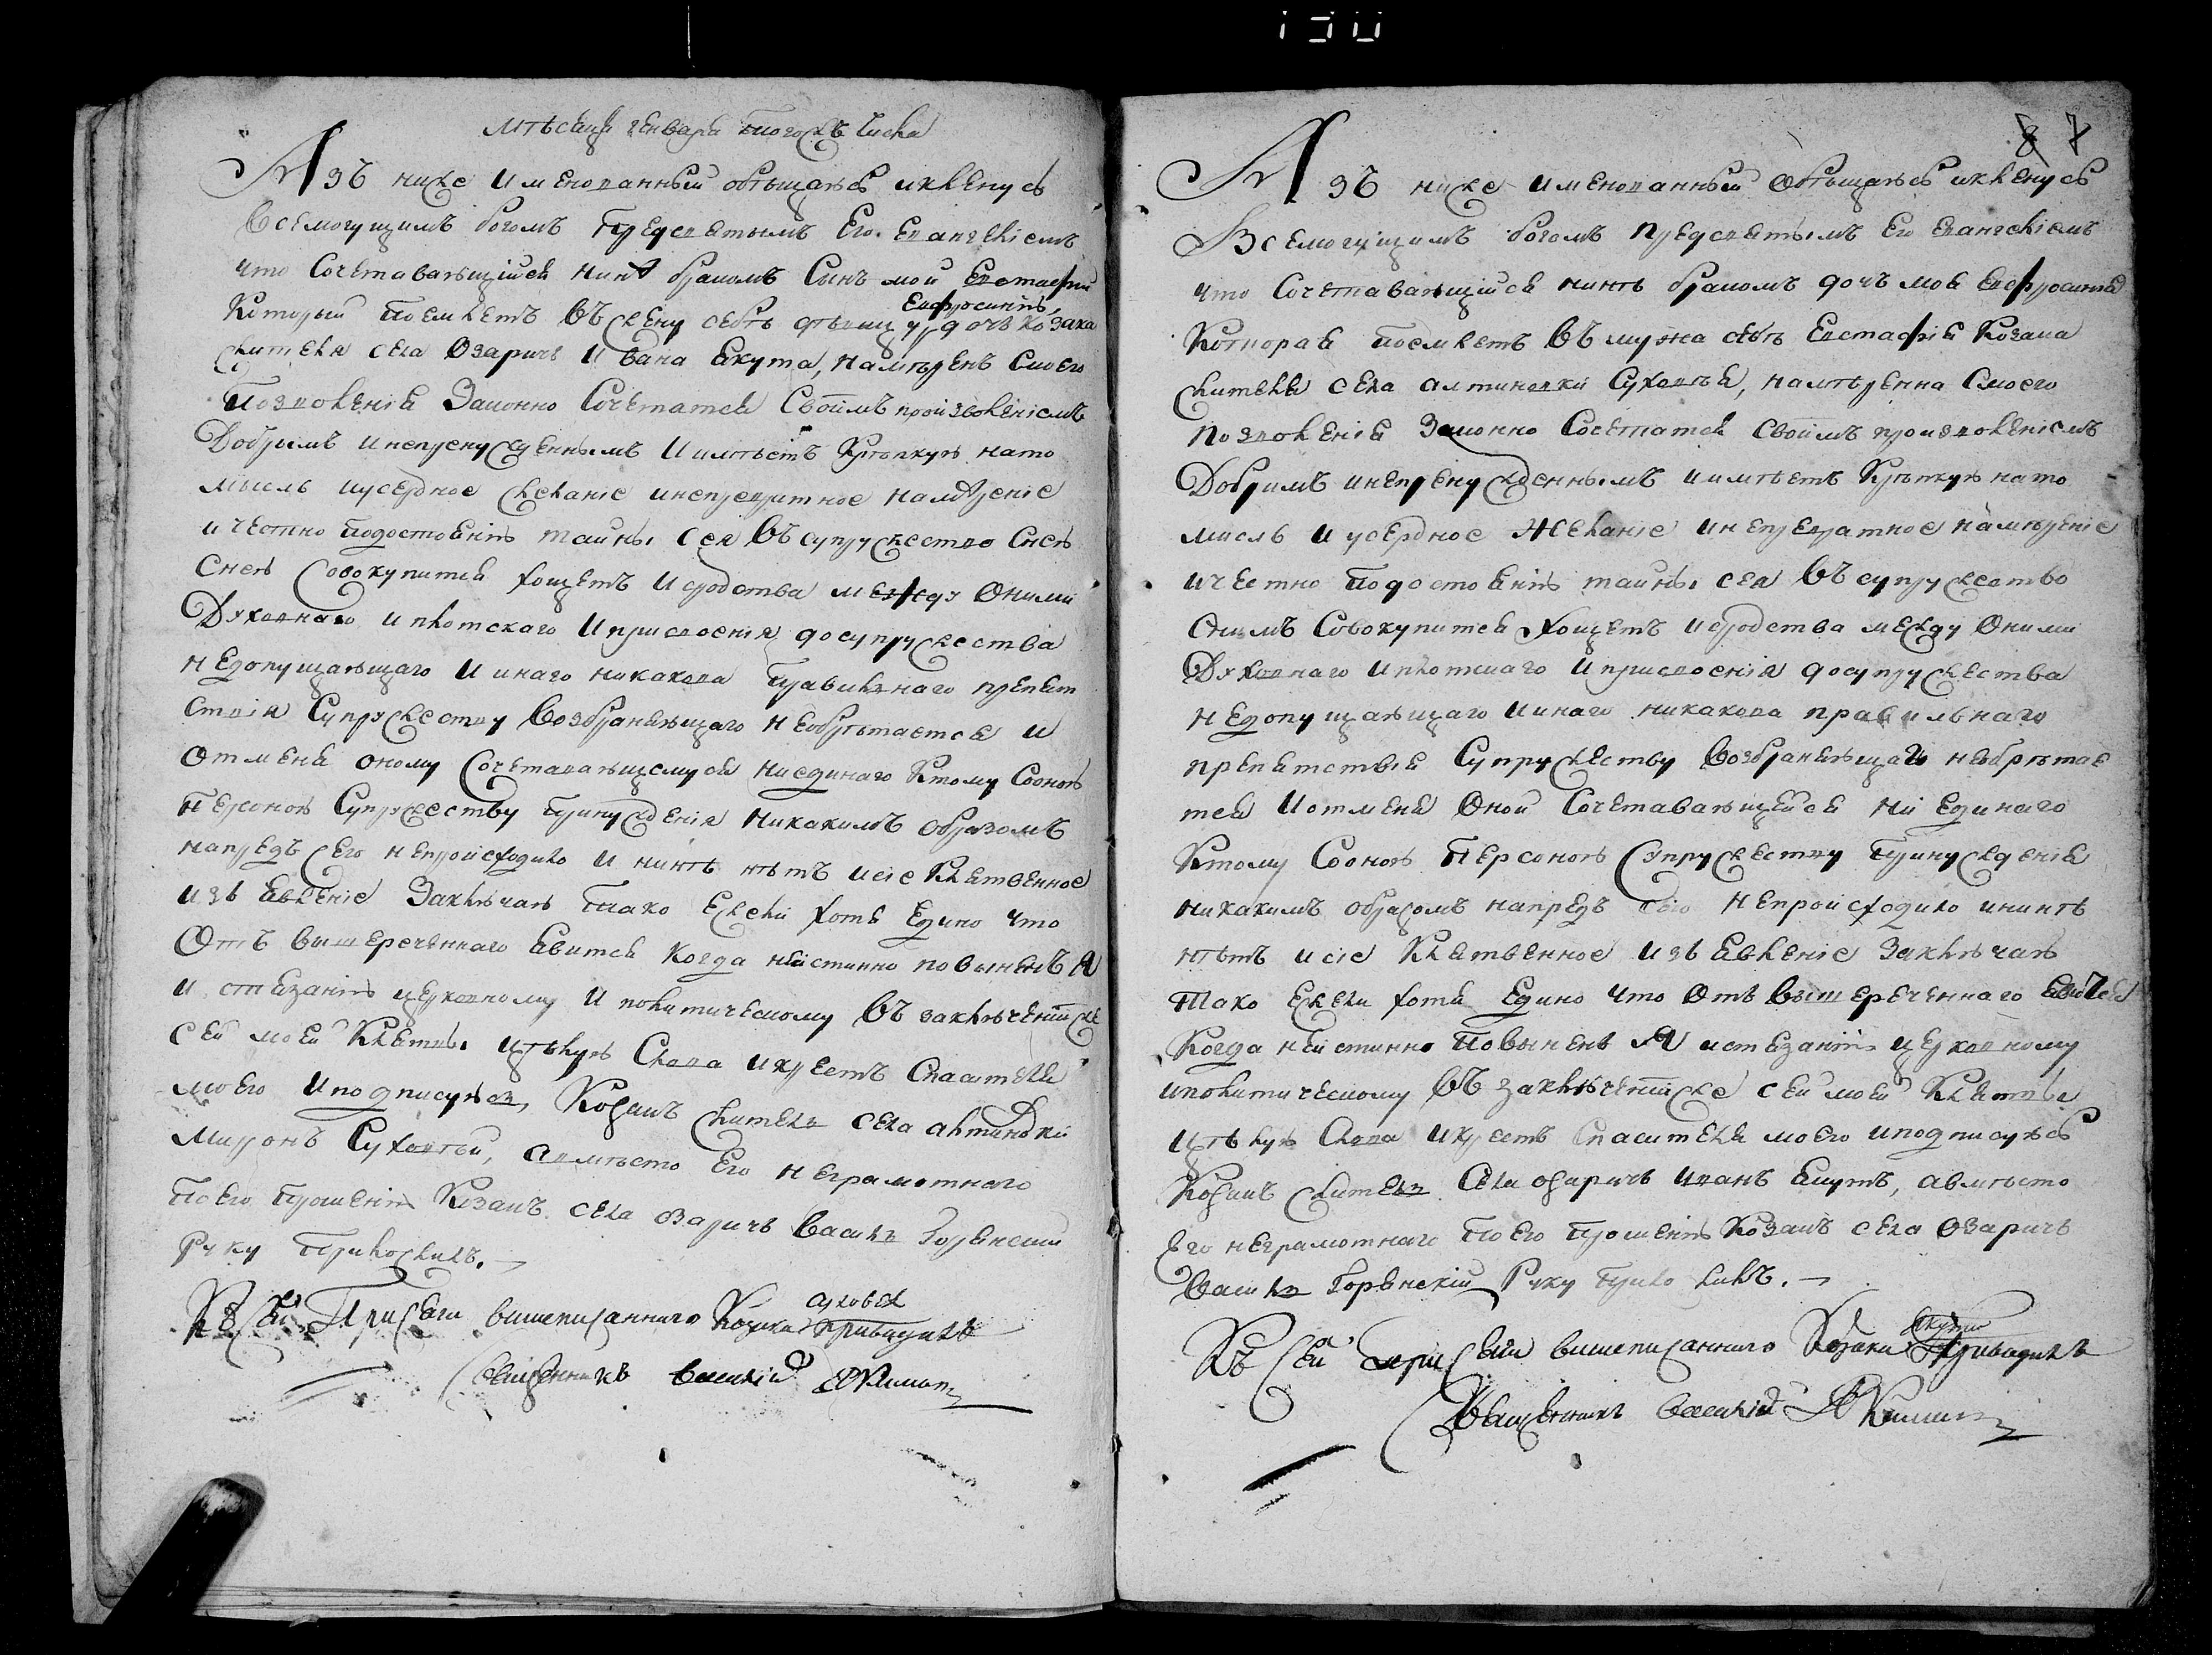 мѣсаца генвара тогожъ числа
Азъ ниже именованный обѣщаюсь и кленусь
Всемогущимъ богомъ предсвятымъ Его Евангелиемъ
что Сочетавающийся нинѣ бракомъ Синъ мой Евстафий
Который поемлетъ въ жену себѣ дѣвицу Евфросинию, дочь козака
жителя села Озаричъ Ивана Якута, намѣренъ Смоего
позволения Законно Сочетатся Своимъ произволениемъ
Добрымъ инепренужденнымъ И имѣетъ Крѣпкую нато
мысль иусердное желание инепревратное намѣрение
ичестно подостоянию тайны сея Въ супружество Снею
Снею Совокупится хощетъ Исродства между Оними
Духовнаго иплотскаго Иприсвоения досупружества
недопущающаго И инаго никакова правилнаго препят
ствия Супружеству Возбраняющаго необрѣтается И
Отменя оному Сочетавающемуся ниединаго Ктому Сооною
персоною Супружеству принуждения никакимъ образомъ
напредъ Сего непроисходило И нинѣ нѣтъ исие Клятвенное
изъявление Заключаю тако Ежели хотя Едино что
Отъ вишереченнаго явится когда неистинно повыненъ Я
и стязанию церковному И политическому Въ заключении же
сей моей Клятвы цѣлую Слова икрестъ Спасителя
моего Иподписуюся, Козакъ житель села алтиновки
Миронъ Суховѣй, авмѣсто Его неграмотнаго
поЕго прошению Козакъ села озаричъ Василь Горянский
Руку приложилъ.
Къ сей Присяги вишеписанного Козака Суховея приводилъ
Священникъ Василий
8 7
Азъ ниже именованный Обѣщаюсь икленусь
Всемогущимъ богомъ предсвятымъ Его Евангелиемъ
что Сочетавающийся нинѣ бракомъ дочъ моя Евфросиния
Которая поемлетъ въ мужа себѣ Евстафия Козака
жителя села алтиновки Суховѣя, намѣренна Смоего
позволения Законно Сочетатся Своимъ произволениемъ
Добримъ инепренужденнымъ иимѣетъ Крѣпкую нато
мисль И усердное Желание инепревратное намѣрение
ичестно подостоянию тайны сея Въ супружество
Снимъ Совокупится хощетъ исродства между Оними
Духовнаго Иплотскаго Иприсвоения досупружества
недопущающаго Иинаго никакова правильнаго
препятствия Супружеству Возбраняющаго необрѣтае
тся Иотменя Оной Сочетавающейся ни Единаго
Ктому Сооною Персоною Супружеству принуждения
никакимъ образомъ напредъ сего непроисходило ининѣ
нѣтъ исие Клятвенное изъявление Заключаю
тако Ежели хотя Едино что Отъ вышереченнаго явится
Когда неистинно повыненъ Я истязанию церковному
иполитическому Въ заключении же сей моей Клятвы
цѣлую Слова икрестъ Спасителя моего иподписуюсь
Козакъ житель Села озаричъ Иванъ Якутъ, авмѣсто
Его неграмотнаго поЕго прошению Козакъ села Озаричъ
Василь Горянский Руку приложилъ.
Къ сей присяги вишеписанного Козака Якути Приводилъ
Священникъ Василий